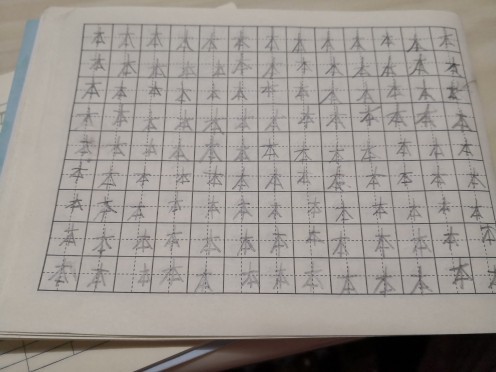 本本本本本本本本本本本本本
本本本本本本本本本本本本本
本本本本本本本本本本本本本
本本本本本本本本本本本本本
本本本本本本本本本本本本本
本本本本本本本本本本本本本
本本本本本本本本本本本本本
本本本本本本本本本本本本本
本本本本本本本本本本本本本